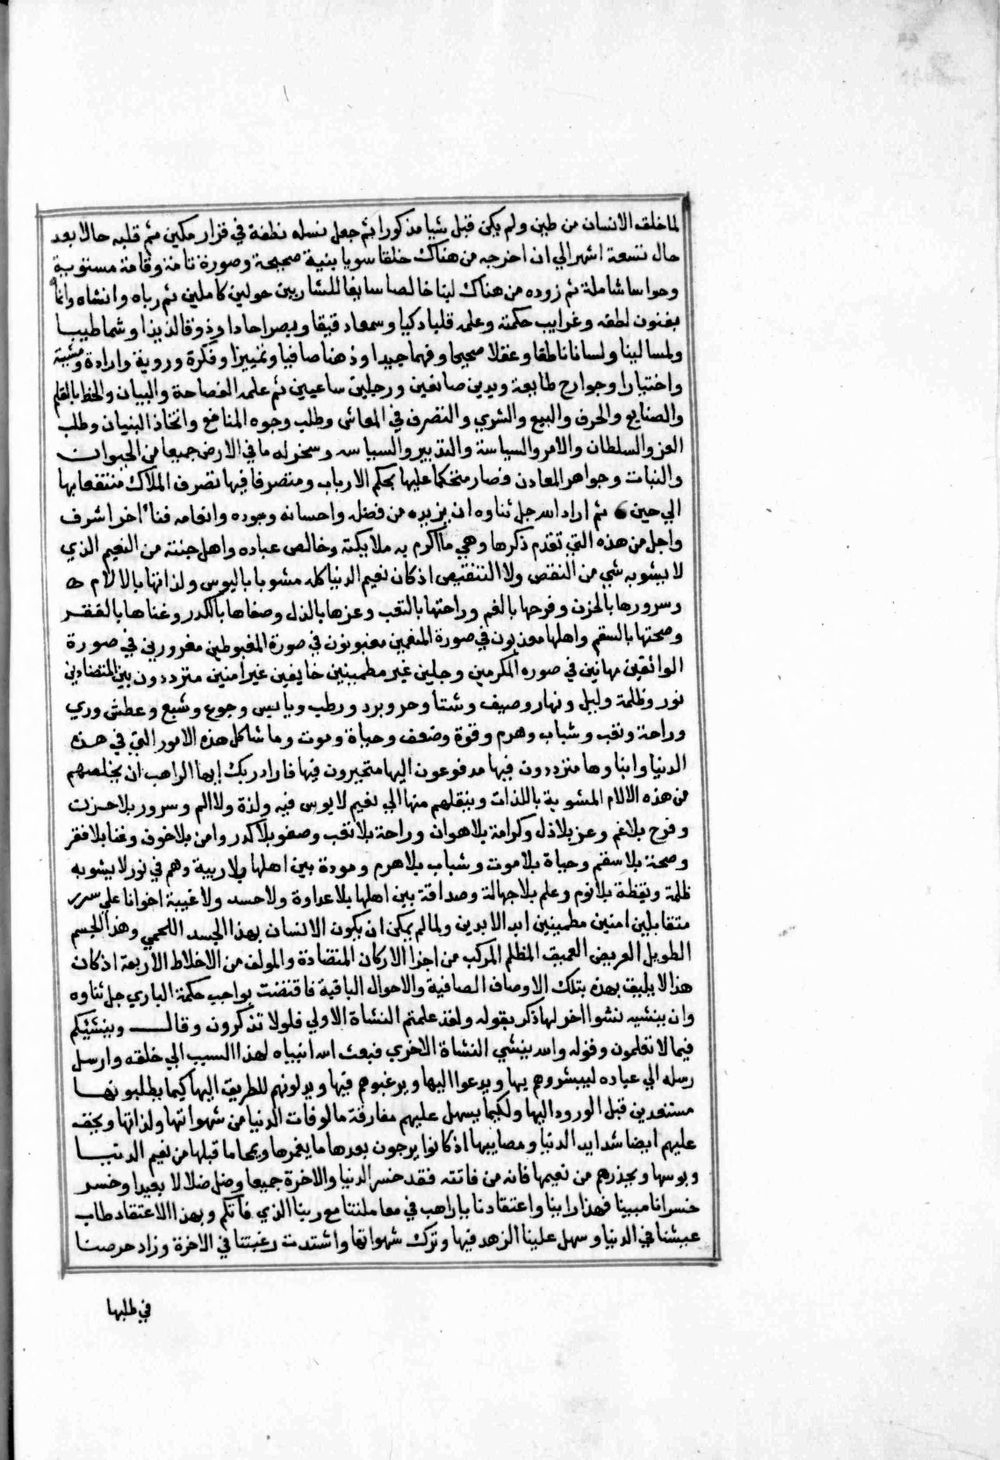 لما خلق الانسان من طين ولم يكن قبل شيا مذكورا ثم جعل نسله نطفة في قرار مكين ثم قلبه حالا بعد
حال تسعة اشهر الي ان اخرجه من هناك خلقا سويا بنية صحيحة وصورة تامة وقامة مستوية
وحواسا شاملة ثم زوده من هناك لبنا خالصا سايغا للشاربين حولين كاملين ثم رباه وانشاه وانماه
بفنون لطفه وغرايب حكمته وعلمه قلبا دكيا وسمعا دقيقا وبصرا حادا وذوقا لذيذا وشما طيبا
ولمسا لينا ولسانا ناطقا وعقلا صحيحا وفهما جيدا وذهنا صافيا وتمييزا وفكرة وروية وارادة ومشية
واختيارا وجوارح طايعة ويدين صانعين ورجلين ساعيين ثم علمه الفصاحة والبيان والخط بالقلم
والصنايع والحرف والبيع والشري والتصرف في المعاش وطلب وجوه المنافع واتخاذ البنيان وطلب
العز والسلطان والامر والسياسة والتدبير والسياسه وسخر له ما في الارض جميعا من الحيوان
والنبات وجواهر المعادن فصار متحكما عليها بحكم الارباب ومتصرفا فيها تصرف الملاك منتفعا بها
الي حين ثم اراد الله جل ثناوه ان يزيده من فضله واحسانه وجوده وانعامه فنا اخر اشرف
واجل من هذه التي تقدم ذكرها وهي ما اكرم به ملايكته وخالص عباده واهل جنته من النعيم الذي
لا يشوبه شي من النقص ولا التنقيص اذ كان نعيم الدنيا كله مشوبا بالبوس ولذاتها بالالام
وسرورها بالحزن وفرحها بالغم وراحتها بالتعب وعزها بالذل وصفاها بالكدر وغناها بالفقر
وصحتها بالسقم واهلها معذبون في صورة المنعمين مغبونون في صورة المغبوطين مغرورين في صورة
الواثقين مهانين في صوره المكرمين وجلين غير مطمينين خايفين غير امنين مترددون بين المتضادين
نور وظلمة وليل ونهار وصيف وشتا وحر وبرد ورطب ويابس وجوع وشبع وعطش وري
وراحة وتعب وشباب وهرم وقوة وضعف وحياة وموت وما شاكل هذه الامور التي في هذه
الدنيا وابناوها مترددون فيها مدفوعون اليها متحيرون فيها فاراد ربك ايها الراهب ان يخلصهم
من هذه الالام المشوبة باللذات وينقلهم منها الي نعيم لا بوس فيه ولذة ولا الم وسرور بلا حزن
وفرح بلا غم وعز بلا ذل وكرامة بلا هوان وراحة بلا تعب وصفو بلا كدر وامن بلا خوف وغنا بلا فقر
وصحة بلا سقم وحياة بلا موت وشباب بلا هرم ومودة بين اهلها بلا ريبة وهم في نور لا يشوبه
ظلمة ويقظة بلا نوم وعلم بلا جهالة وصداقة بين اهلها بلا عداوة ولا حسد ولا غيبة اخوانا علي سرر
متقابلين امنين مطمينين ابد الابدين ولما لم يمكن ان يكون الانسان بهذا الجسد اللحمي وهذا الجسم
الطويل العريض العميق المظلم المركب من اجزا الاركان المتضادة والمولف من الاخلاط الاربعة اذ كان
هذا لا يليق بهذه بتلك الاوصاف الصافية والاحوال الباقية فاقتضت بواجب حكمة الباري جل ثناوه
وان ينشيه نشوا اخر لها ذكر بقوله ولقد علمتم النشاة الاولي فلولا تذكرون وقال وننشيكم
فيما لا تعلمون وقوله والله ينشي النشاة الاخري فبعث الله انبياه لهذا السبب الي خلقه وارسل
رسله الي عباده ليبشروهم بها ويدعوا اليها ويرغبوهم فيها ويدلونهم للطريق اليها كيما يطلبونها
مستعدين قبل الورود اليها ولكيما يسهل عليهم مفارقة مالوفات الدنيا من شهواتها ولذاتها ويخف
عليهم ايضا شدايد الدنيا ومصايبها اذ كانوا يرجون بعدها ما يغمرها ويمحا ما قبلها من نعيم الدنيا
وبوسها ويحذرهم من نعيمها فانه من فاتته فقد خسر الدنيا والاخرة جميعا وضل ضلالا بعيدا وخسر
خسرانا مبينا فهذا راينا واعتقادنا ياراهب في معاملتنا مع ربنا الذي فاتكم وبهذا الاعتقاد طاب
عيشنا في الدنيا وسهل علينا الزهد فيها وترك شهواتها واشتدت رغبتنا في الاخرة وزاد حرصنا
في طلبها